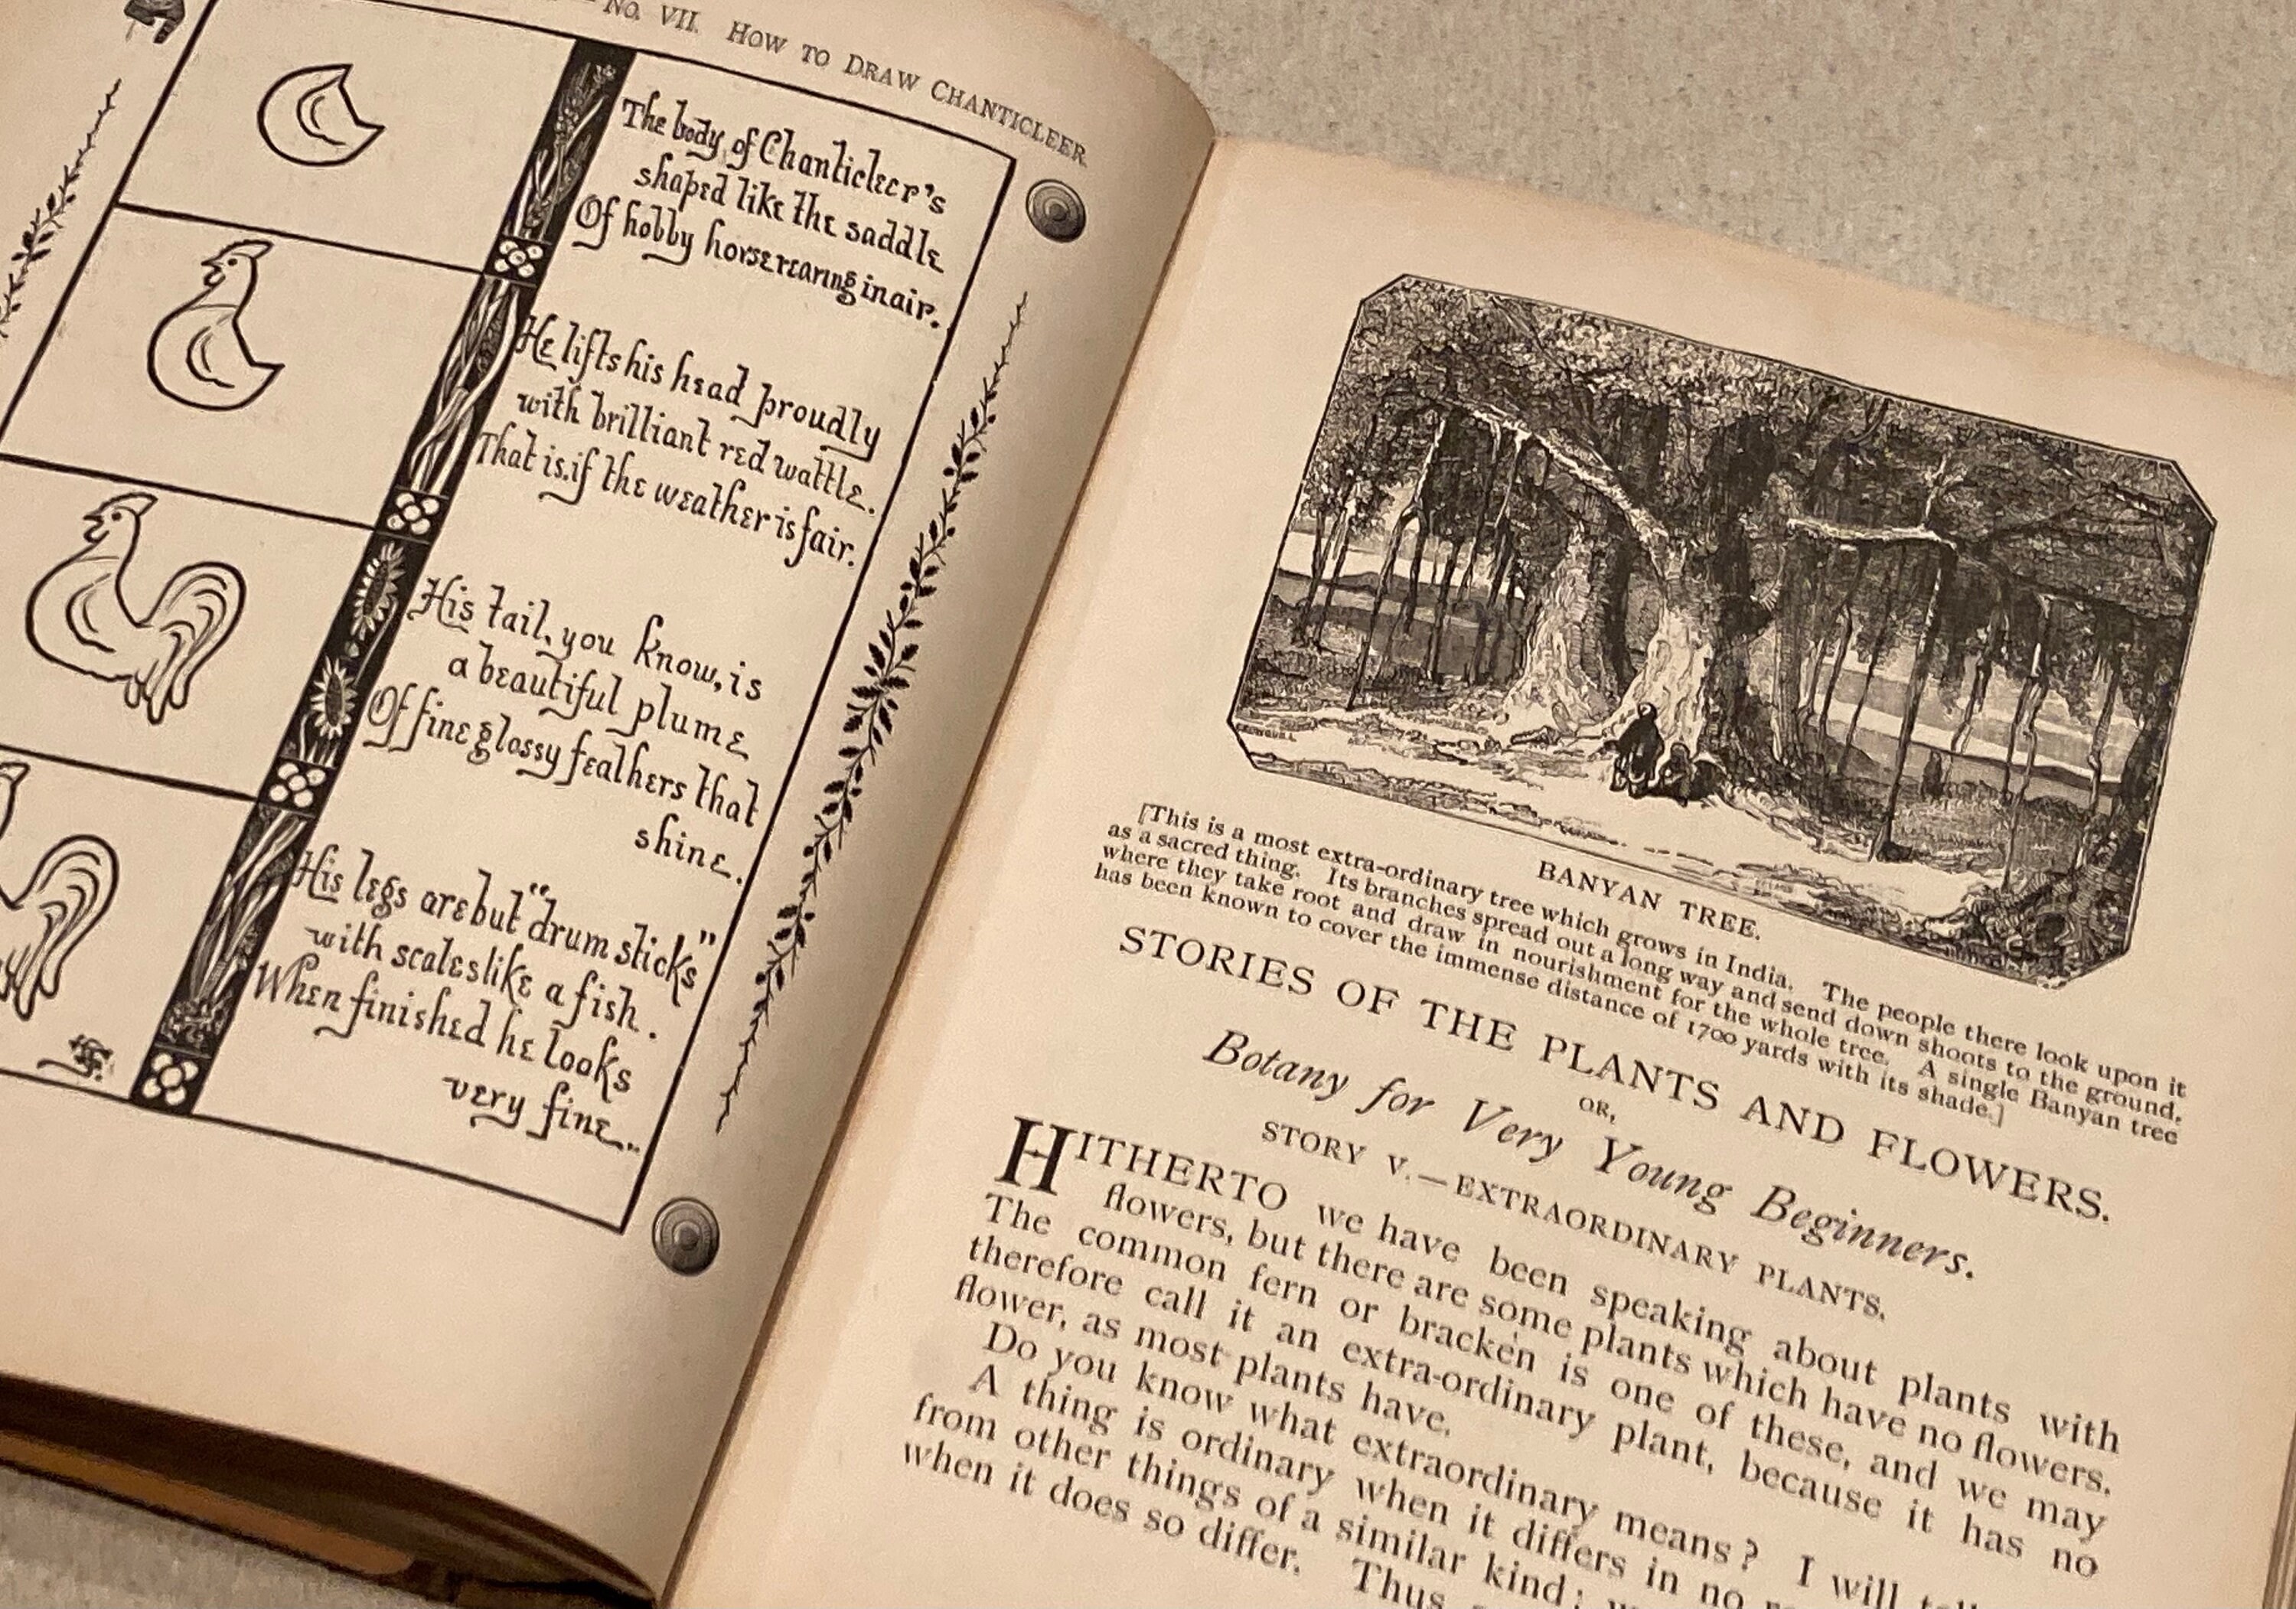 No. VII. How to Draw Chanticleer.
The body of Chanticleer's
shaped like the saddle
Of hobby horse rearing in air.
He lifts his head proudly
with brilliant red wattle.
That is, if the weather is fair.
His tail, you know, is
a beautiful plume
Of fine glossy feathers that
shine.
His legs are but "drum sticks"
with scales like a fish.
When finished he looks
very fine.
BANYAN TREE.
[This is a most extra-ordinary tree which grows in India. The people there look upon it
as a sacred thing. Its branches spread out a long way and send down shoots to the ground,
where they take root and draw in nourishment for the whole tree. A single Banyan tree
has been known to cover the immense distance of 1700 yards with its shade.]
STORIES OF THE PLANTS AND FLOWERS.
OR,
Botany for Very Young Beginners.
STORY V.—EXTRAORDINARY PLANTS.
HITHERTO we have been speaking about plants with
flowers, but there are some plants which have no flowers.
The common fern or bracken is one of these, and we may
therefore call it an extra-ordinary plant, because it has no
flower, as most plants have.
Do you know what extraordinary means? I will
A thing is ordinary when it differs in no
from other things of a similar kind;
when it does so differ. Thus